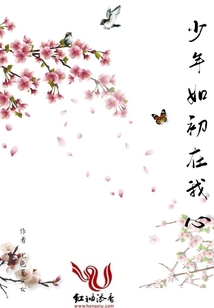 少年如初在我心
作者
色
女
红袖添香
www.hongxiu.com